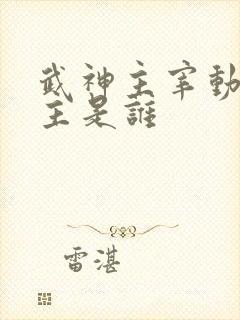 武神主宰動
主是誰
雷湛